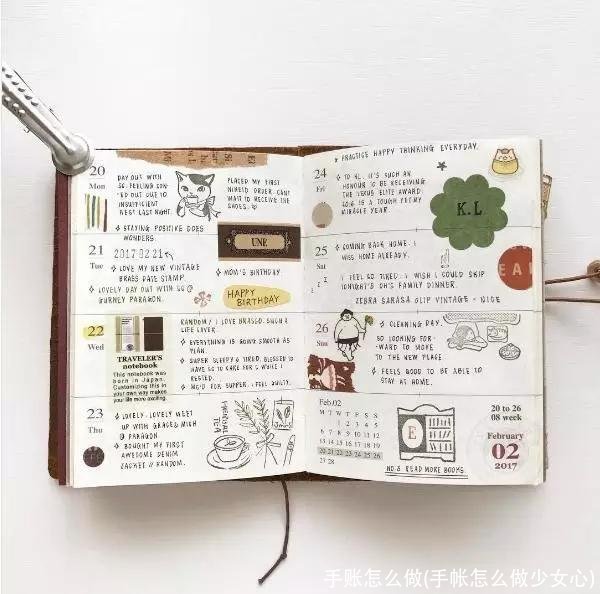 20
Mon
DAY OUT WITH
SG. FEELING CON-
ED OUT DUE TO
INSUFFICIENT
REST LAST NIGHT.
PLACED MY FIRST
NIKEID ORDER. CANT
WAIT TO RECEIVE THE
SHOES.
STAYING POSITIVE DOES
WONDERS.
21
Tue
2017.02.21
LOVE MY NEW VINTAGE
BRASS DATE STAMP.
LOVELY DAY OUT WITH SG @
GURNEY PARAGON.
UNE
MOM'S BIRTHDAY
HAPPY
BIRTHDAY
22
Wed
TRAVELER'S
notebook
This notebook was
born in Japan.
Customizing this in
your own way makes
your life more exciting.
RANDOM / I LOVE BRASCO. SUCH A
LIFE LOVER.
EVERYTHING IS GOING SMOOTH AS
PLAN.
SUPER SLEEPY & TIRED. BLESSED TO
HAVE SG TO CARE FOR G WHILE I
RESTED.
MC'D FOR SUPPER. I FEEL GUILTY.
23
Thu
LOVELY-LOVELY MEET
UP WITH GRACE & MICH
@ PARAGON
BOUGHT MY FIRST
AWESOME DENIM
JACKET // RANDOM.
TEA
PRACTICE HAPPY THINKING EVERYDAY.
24
Fri
TO KL. IT'S SUCH AN
HONOUR TO BE RECEIVING
THE VENUS ELITE AWARD.
2016 IS A TOUGH YET MY
MIRACLE YEAR.
K.L
25
Sat
COMING BACK HOME. I
MISS HOME ALREADY.
I FEEL SO TIRED. I WISH I COULD SKIP
TONIGHT'S OH'S FAMILY DINNER.
ZEBRA SARASA CLIP VINTAGE = NICE
EA
26
Sun
CLEANING DAY.
SO LOOKING FOR-
WARD TO MOVE
TO THE NEW PLACE.
FEELS GOOD TO BE ABLE TO
STAY AT HOME.
Feb.02
M T W T F S S
1 2 3 4 5
6 7 8 9 10 11 12
13 14 15 16 17 18 19
20 21 22 23 24 25 26
27 28
E
NO.3 READ MORE BOOKS.
20 to 26
08 week
February
02
2017
手账怎么做(手帐怎么做少女心)